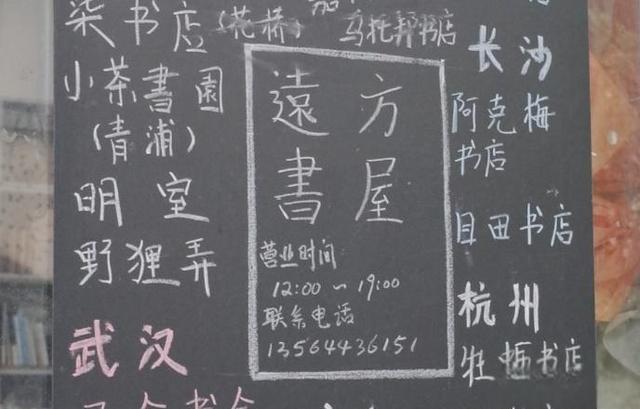 柒书店(花桥)
小茶書園
(青浦)
明室
野狸弄
武汉
乌托邦书店
遠方
書屋
营业时间
12:00~19:00
联系电话
13564436151
长沙
阿克梅
书店
目田书店
杭州
牡蛎书店